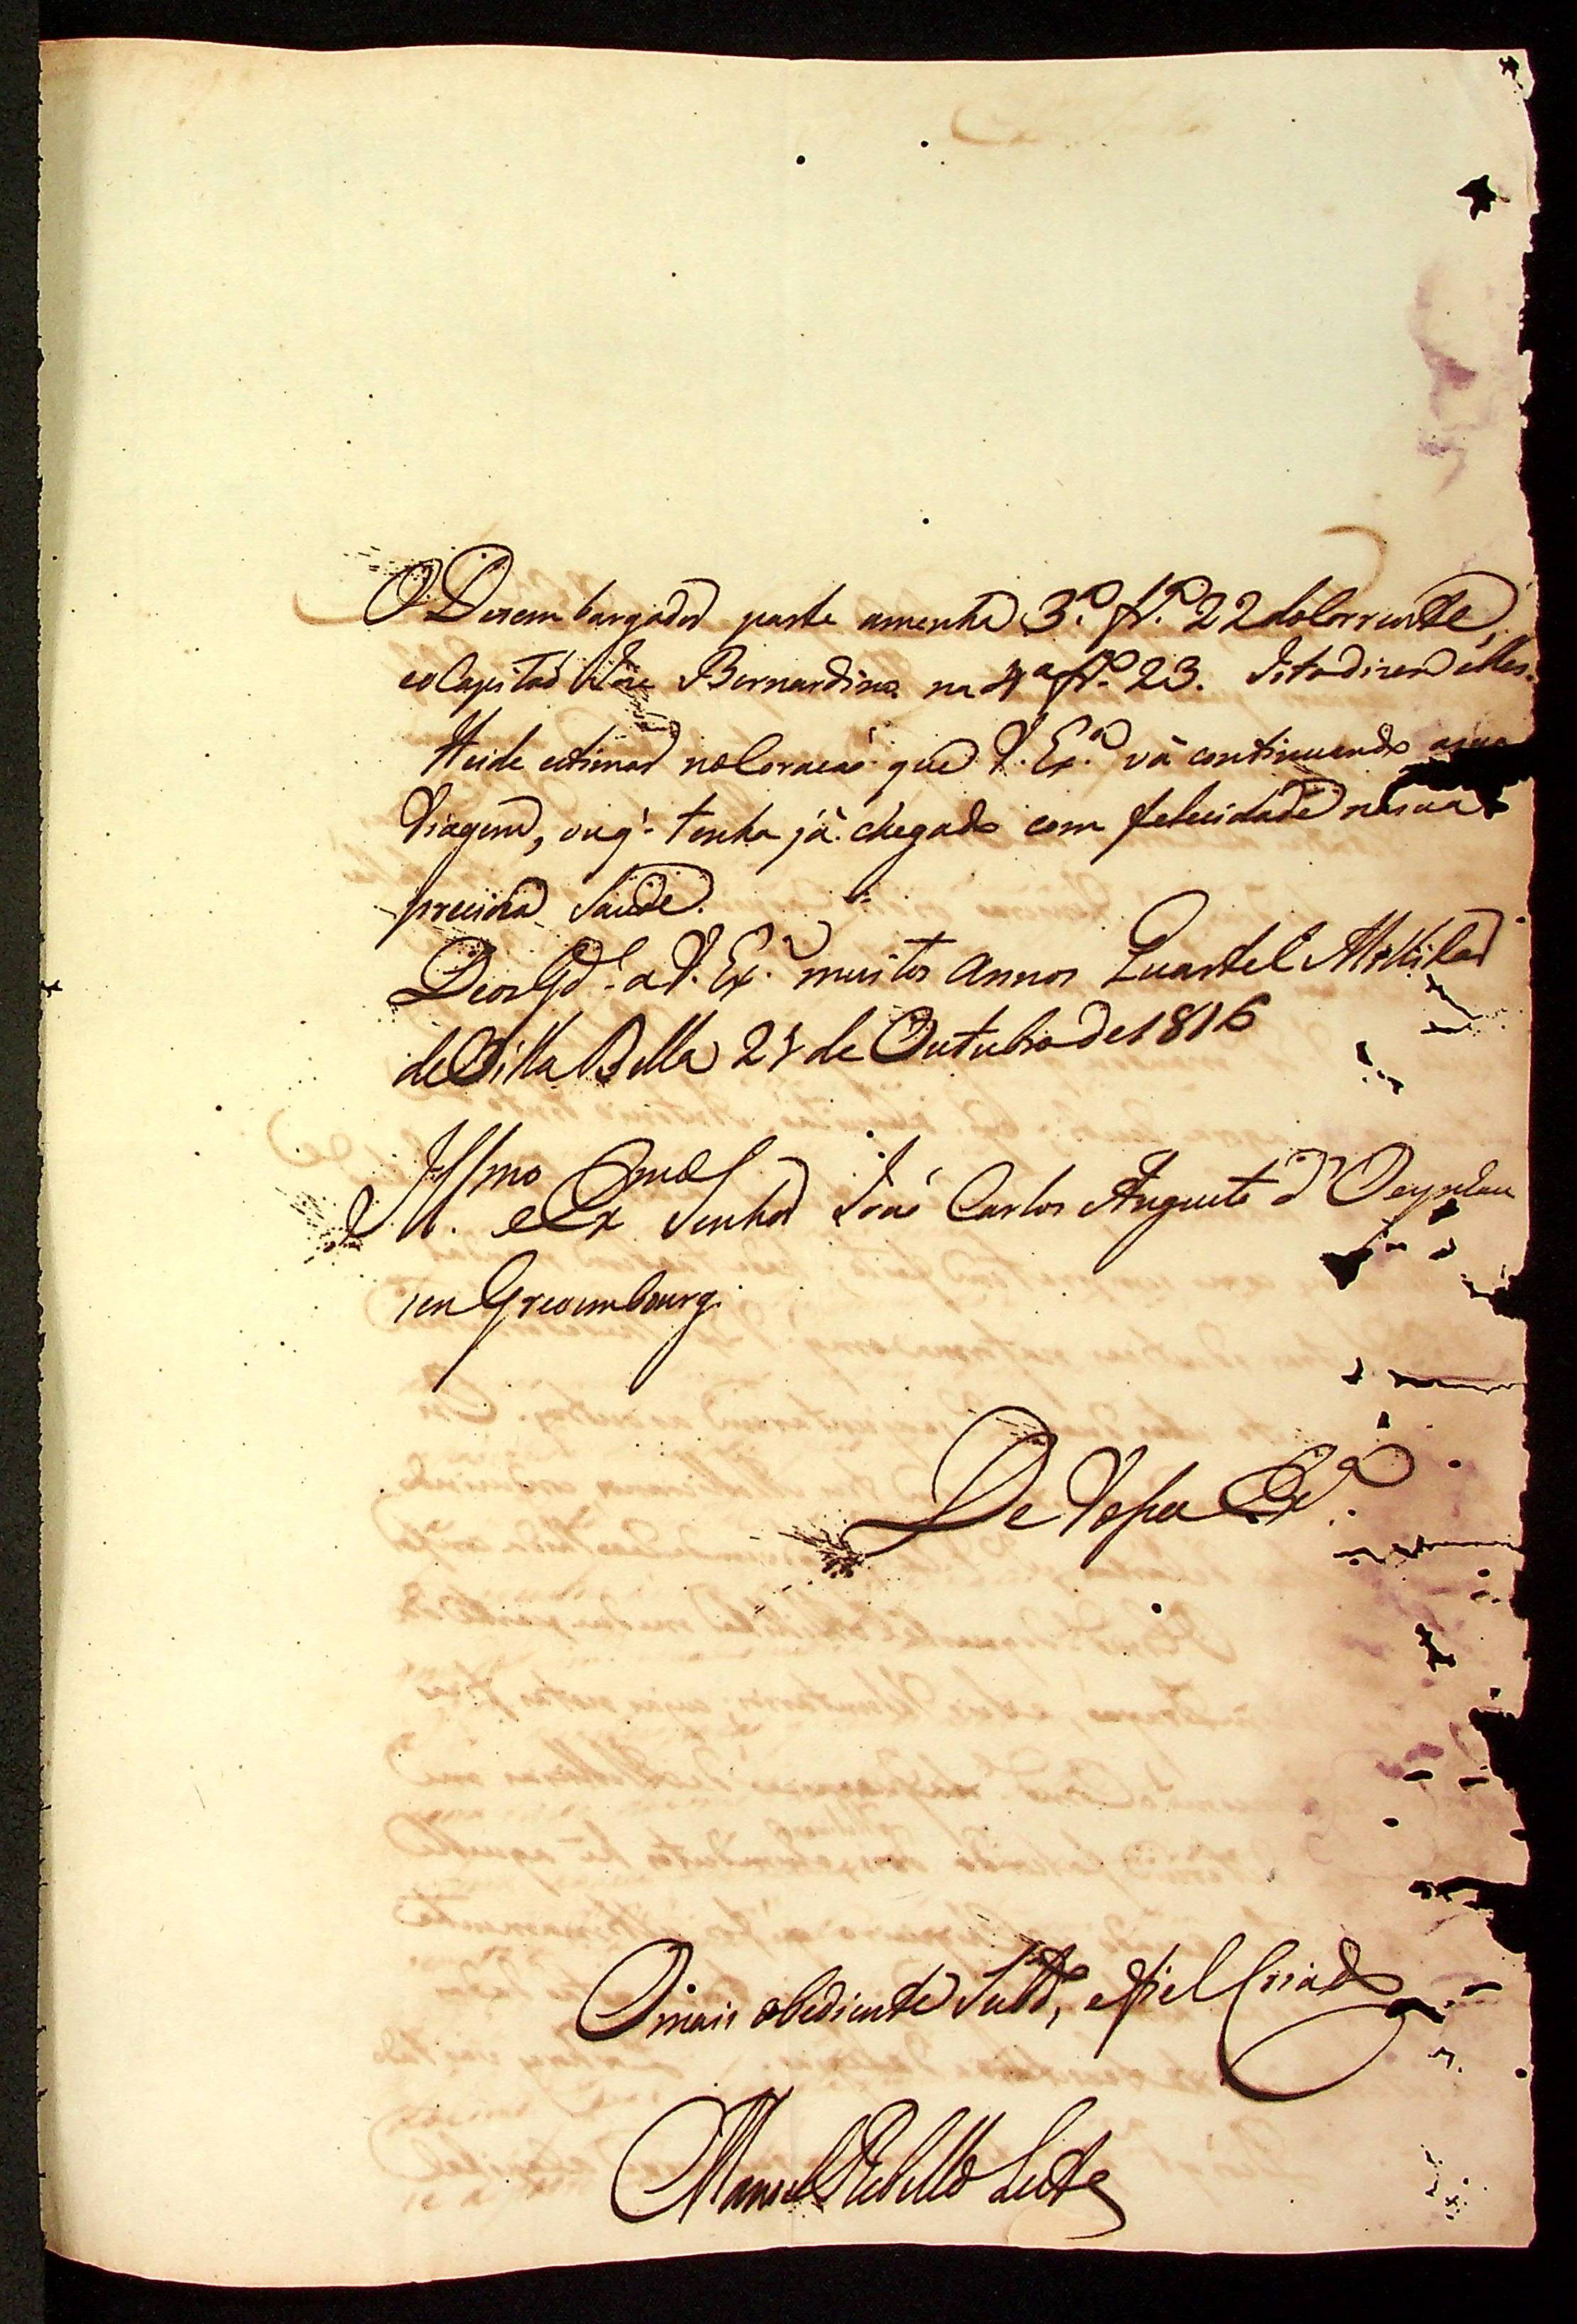 O Desembargador parte amenhã 3.ª fr.ª 22 do Corrente,
e o Capitaõ Joze Bernardino na 4ª fr.ª 23. Isto dizem elles.
Heide estimar no Coraçaõ que V. Ex.ª vá continuando a sua
Viagem, ou q̃ tenha já chegado com felicidade na sua
precioza Saude.
Deos G.de a V. Ex.ª muitos annos Quartel Militar
de Villa Bella 21 de Outubro de 1816
Ill.mo e Ex.mo Senhor João Carlos Augusto d'Oeynhau
sen Grevembourg.
De Vossa Ex.ª
O mais obediente Subd.º, e fiel Criado
Manoel Rebello Leite